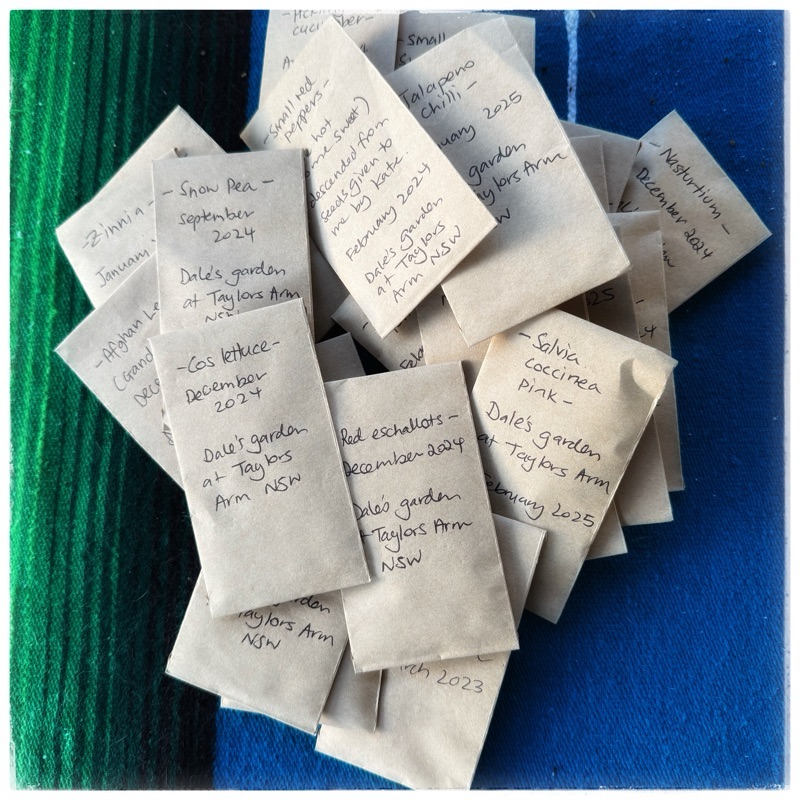 cucumber-
-Small
-Small red
peppers-
hot
me sweet)
descended from
seeds given to
me by Kate.
February 2024
Dale's garden
at Taylors
Arm NSW
Jalapeno
chilli -
2025
garden
Taylors Arm
- Nasturtium -
December 2024
-Zinnia-
January
- Snow Pea -
September
2024
Dale's garden
at Taylors Arm
NSW
-Afghan
(Grand
-Cos lettuce-
December
2024
Dale's garden
at Taylors
Arm NSW
Red eschallots -
December 2024
Dale's garden
Taylors Arm
NSW
- Salvia
coccinea
Pink -
Dale's garden
at Taylors Arm
February 2025
Taylors Arm
NSW
2023